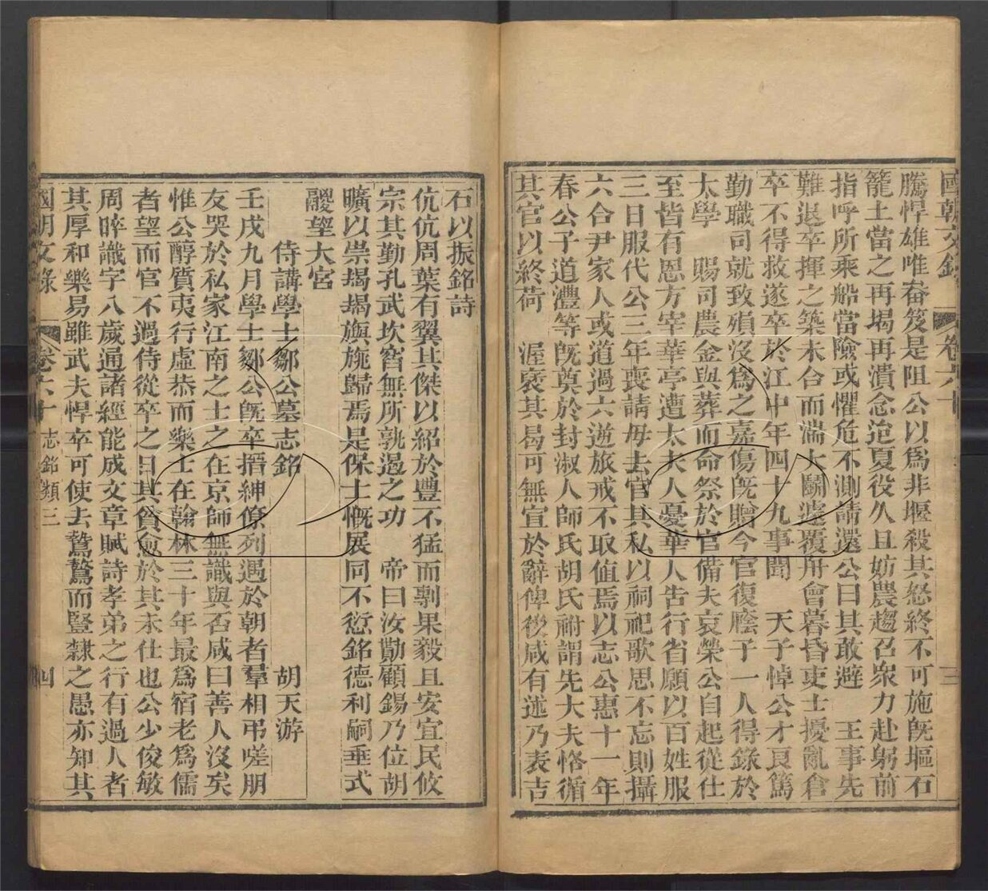 國朝文錄 卷六十 三
騰悍雄唯畚笈是阻公以爲非堰殺其怒終不可施旣堰石
籠土當之再堨再潰念迨夏役久且妨農趨召衆力赴躬前
指呼所乘船當險或懼危不測請還公曰其敢避 王事先
難退卒揮之築未合而湍大鬬遽覆舟會暮昏吏士擾亂倉
卒不得救遂卒於江中年四十九事聞 天子悼公才良篤
勤職司就致殞沒爲之嘉傷旣贈今官復廕子一人得錄於
太學 賜司農金與葬而命祭於官備夫哀榮公自起從仕
至皆有恩方宰華亭遭太夫人憂華人告行省願以百姓服
三日服代公三年喪請毋去官其私以祠祀歌思不忘則攝
六合尹家人或道過六遊旅戒不取值焉以志公惠十一年
春公子道灃等旣奠於封淑人師氏胡氏祔謂先大夫恪循
其官以終荷 渥褒其曷可無宣於辭俾後咸有述乃表吉
石以振銘詩
伉伉周葉有翼其傑以紹於豐不猛而剸果毅且安宜民攸
宗其勤孔武坎窞無所孰遏之功 帝曰汝勩顧錫乃位胡
曠以崇堨堨旟旐歸焉是保士慨展同不愆銘德利嗣垂式
䂍望大宮
侍講學士鄒公墓志銘 胡天游
壬戌九月學士鄒公旣卒搢紳僚列遇於朝者羣相弔嗟朋
友哭於私家江南之士之在京師無識與否咸曰善人沒矣
惟公醇質夷行虛恭而樂士在翰林三十年最爲宿老爲儒
者望而官不過侍從卒之日其貧愈於其未仕也公少俊敏
周晬識字八歲通諸經能成文章賦詩孝弟之行有過人者
其厚和樂易雖武夫悍卒可使去驁驁而豎隸之愚亦知其
國朝文錄 卷六十 志銘類三 四